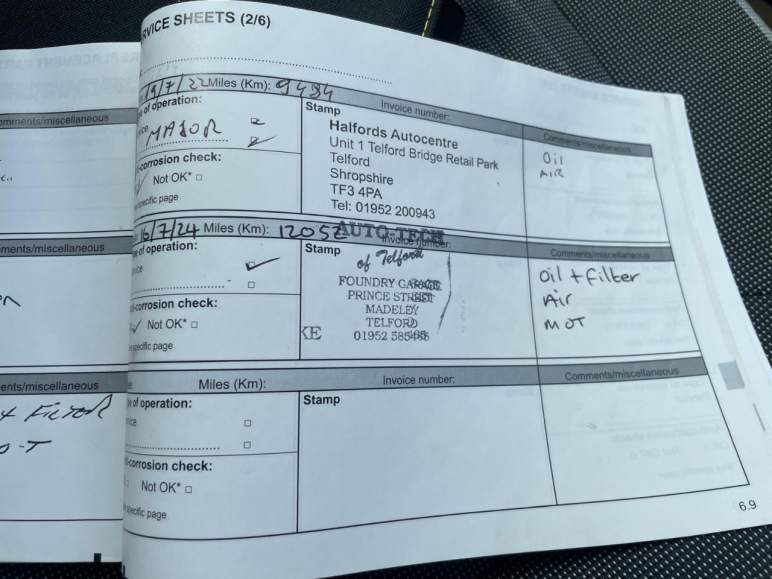 RVICE SHEETS (2/6)
19/7/22 Miles (Km): 9484
Invoice number:
Comments/miscellaneous
of operation:
MAJOR
-corrosion check:
Not OK*
specific page
Stamp
Halfords Autocentre
Unit 1 Telford Bridge Retail Park
Telford
Shropshire
TF3 4PA
Tel: 01952 200943
Oil
AIR
16/7/24 Miles (Km): 12052
Invoice number:
Comments/miscellaneous
of operation:
-corrosion check:
Not OK*
specific page
Stamp
AUTO-TECH
of Telford
FOUNDRY GARAGE
PRINCE STREET
MADELEY
TELFORD
KE
Oil + Filter
Air
MOT
Miles (Km):
Invoice number:
Comments/miscellaneous
of operation:
-corrosion check:
Not OK*
specific page
Stamp
6.9
omments/miscellaneous
ments/miscellaneous
ents/miscellaneous
+ FILTER
O-T